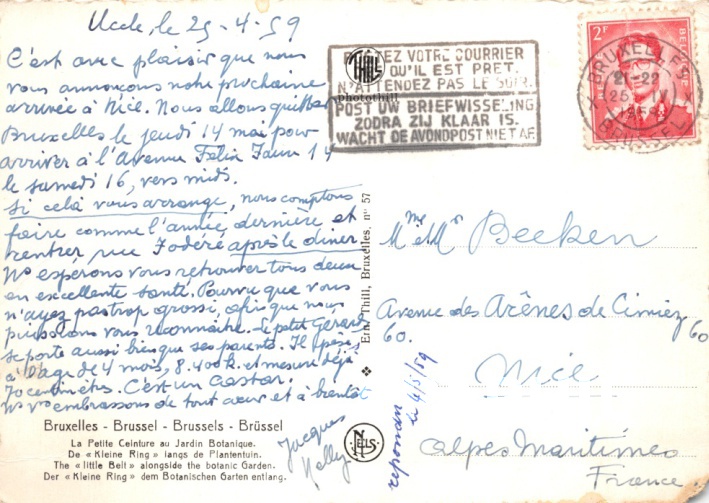 Uccle, le 25-4-59
C'est avec plaisir que nous
vous annonçons notre prochaine
arrivée à Nice. Nous allons quitter
Bruxelles le jeudi 14 mai pour
arriver à l'Avenue Félix Faure 14
le samedi 16, vers midi.
Si celà vous arrange, nous comptons
faire comme l'année dernière et
rentrer rue Foderé après le diner
Ns espérons vous retrouver tous deux
en excellente santé. Pourvu que vous
n'ayez pas trop grossi, afin que nous
puissions vous reconnaitre. Le petit Gérard
se porte aussi bien que ses parents. Il pèse,
à l'âge de 4 mois, 8.400k. et mesure déjà
70 centimètres. C'est un castar.
Ns vs embrassons de tout cœur et à bientôt
Jacques
Nelly
Bruxelles - Brussel - Brussels - Brüssel
La Petite Ceinture au Jardin Botanique.
De « Kleine Ring » langs de Plantentuin.
The « little Belt » alongside the botanic Garden.
Der « Kleine Ring » dem Botanischen Garten entlang.
Ern. Thill, Bruxelles, n° 57
THILL
photothill
NELS
POSTEZ VOTRE COURRIER
QU'IL EST PRET.
N'ATTENDEZ PAS LE SOIR.
POST UW BRIEFWISSELING
ZODRA ZIJ KLAAR IS.
WACHT DE AVONDPOST NIET AF.
2F
BELGIE
BRUXELLES
21-22
25
BRUSSEL
Mme et Mr Beeken
Avenue des Arènes de Cimiez 60
60.
Nice
Alpes Maritimes
France.
répondu
le 4/5/59